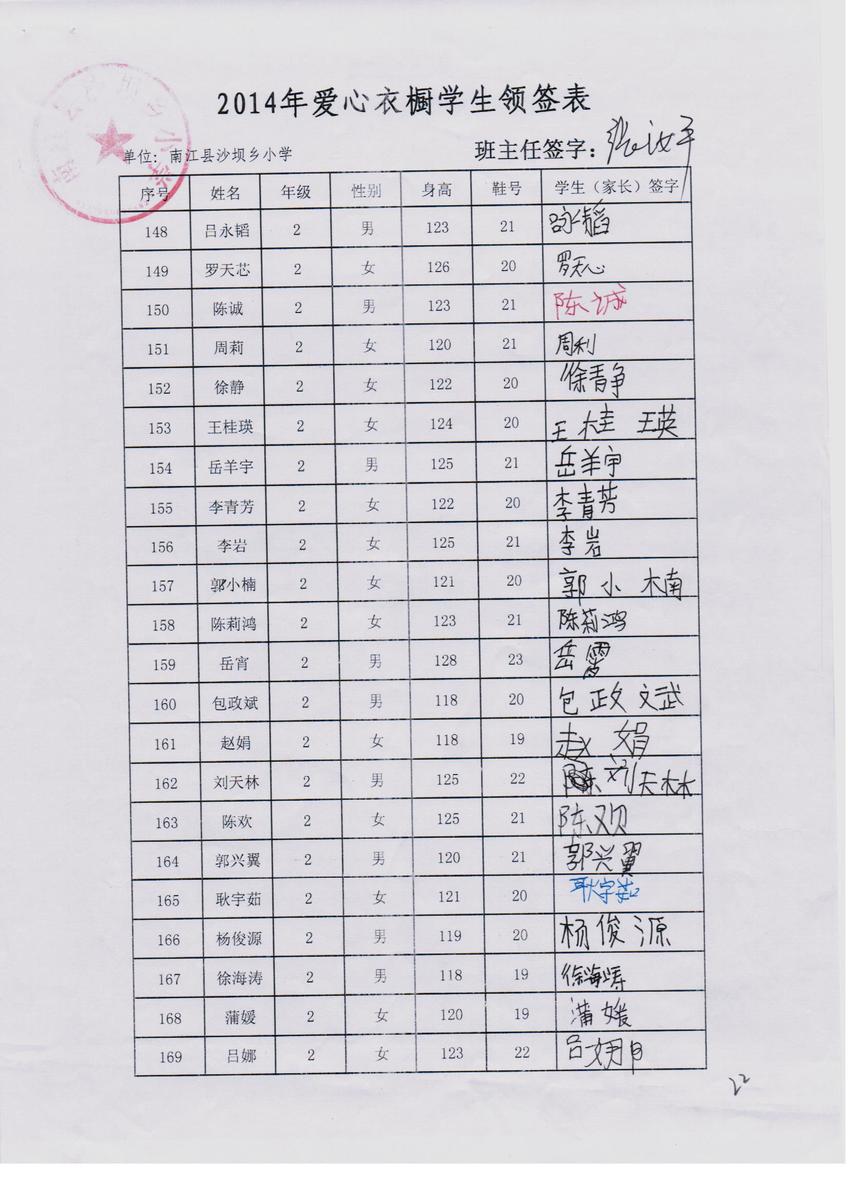 2014年爱心衣橱学生领签表
单位: 南江县沙坝乡小学 班主任签字:
序号 姓名 年级 性别 身高 鞋号 学生（家长）签字
148 吕永韬 2 男 123 21
149 罗天芯 2 女 126 20 罗天心
150 陈诚 2 男 123 21 陈诚
151 周莉 2 女 120 21 周利
152 徐静 2 女 122 20 徐青争
153 王桂瑛 2 女 124 20 王桂 王英
154 岳羊宇 2 男 125 21 岳羊宇
155 李青芳 2 女 122 20 李青芳
156 李岩 2 女 125 21 李岩
157 郭小楠 2 女 121 20 郭小楠
158 陈莉鸿 2 女 123 21 陈莉鸿
159 岳宵 2 男 128 23 岳
160 包政斌 2 男 118 20 包政文武
161 赵娟 2 女 118 19 赵娟
162 刘天林 2 男 125 22 刘天林
163 陈欢 2 女 125 21 陈欢
164 郭兴翼 2 男 120 21 郭兴翼
165 耿宇茹 2 女 121 20 耿宇茹
166 杨俊源 2 男 119 20 杨俊源
167 徐海涛 2 男 118 19 徐海涛
168 蒲媛 2 女 120 19 蒲媛
169 吕娜 2 女 123 22 吕
22